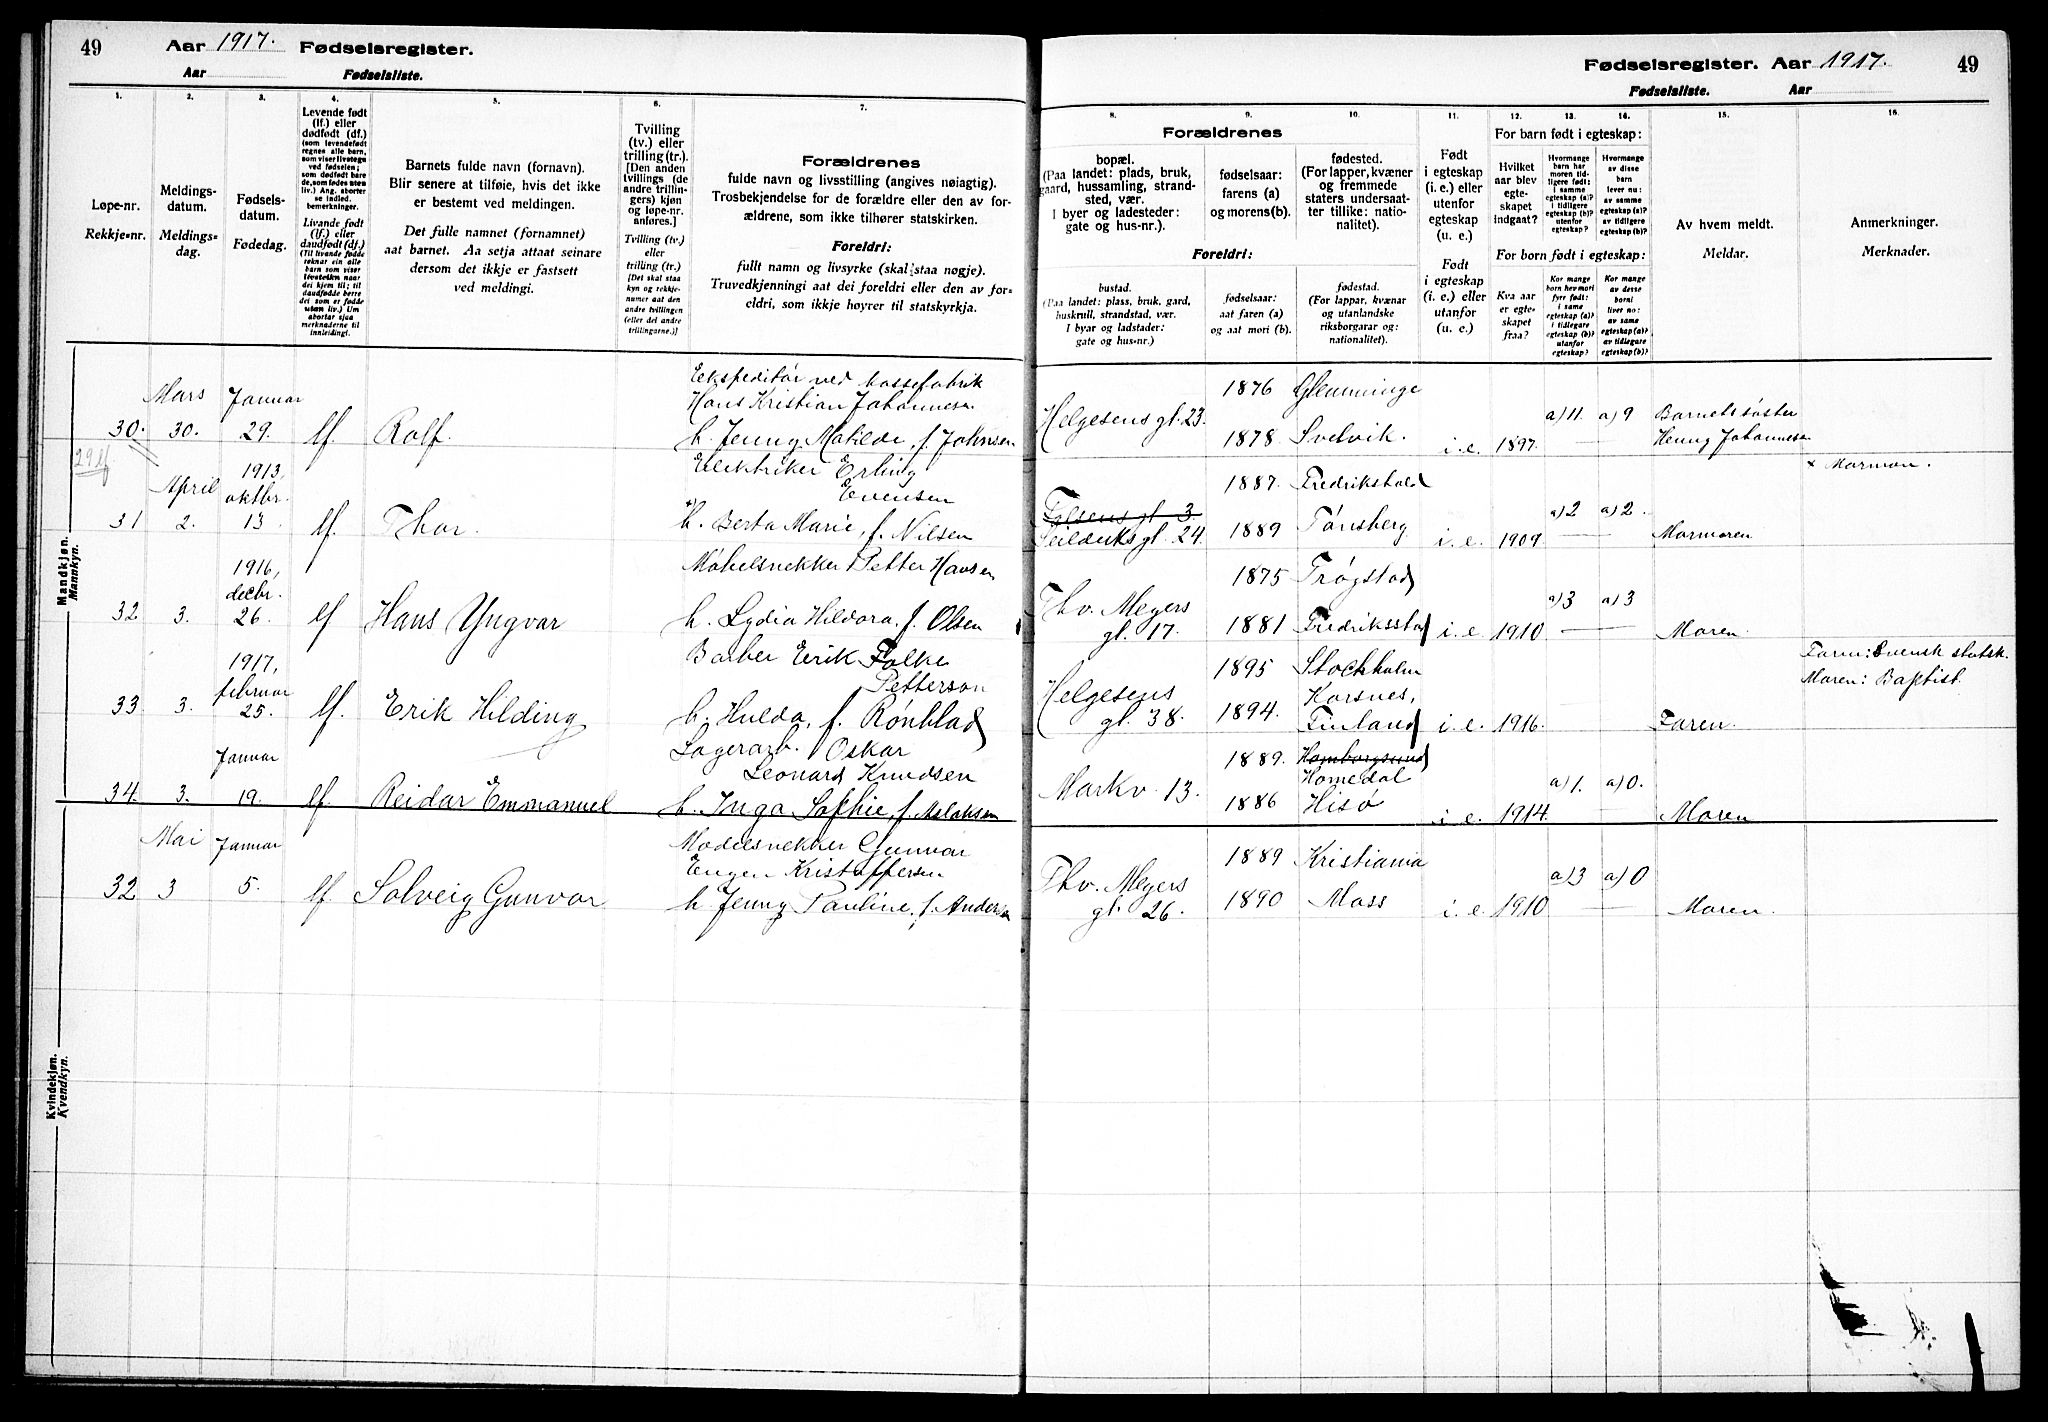 49 Aar 1917. Fødselsregister.
Aar Fødselsliste.
1. 2. 3. 4. 5. 6. 7.
Løpe-nr.
Rekkje-nr.
Meldings-
datum.
Meldings-
dag.
Fødsels-
datum.
Fødedag.
Levende født
(lf.) eller
dødfødt (df.)
(som levendefødt
regnes alle barn,
som viser livstegn
ved fødselen;
som dødfødt bare
de, som fødes uten
liv.) Ang. aborter
se indled.
bemerkninger.
Livande født
(lf.) eller
daudfødt (df.)
(Til livande fødde
reknar ein alle
barn som viser
livsteikn naar
dei kjem til; til
daudfødde berre
dei som er fødde
utan liv.) Um
abortar sjaa
merknaderne til
innleidingi.
Barnets fulde navn (fornavn).
Blir senere at tilføie, hvis det ikke
er bestemt ved meldingen.
Det fulle namnet (fornamnet)
aat barnet. Aa setja attaat seinare
dersom det ikkje er fastsett
ved meldingi.
Tvilling
(tv.) eller
trilling (tr.).
[Den anden
tvillings (de
andre trillin-
gers) kjøn
og løpe-nr.
anføres.]
Tvilling (tv.)
eller
trilling (tr.)
[Det skal staa
kyn og rekkje-
numer aat den
andre tvillingen
(eller dei andre
trillingarne.)]
Forældrenes
fulde navn og livsstilling (angives nøiagtig).
Trosbekjendelse for de forældre eller den av for-
ældrene, som ikke tilhører statskirken.
Foreldri:
fullt namn og livsyrke (skal staa nøgje).
Truvedkjenningi aat dei foreldri eller den av for-
eldri, som ikkje høyrer til statskyrkja.
Mandkjøn.
Mannkyn.
Mars Januar
30. 30. 29. lf. Rolf.
Hans Kristian Johannesen
h. Jenny Matilde, f. Johnsen
1913,
April oktbr.
31 2. 13. lf. Thor.
Elektriker Erling
Evensen
x) h. Berta Marie, f. Nilsen
1916,
decbr.
32 3. 26. lf Hans Yngvar
Møbelsnekker Petter Hansen
h. Lydia Hildora, f. Olsen
1917,
februar
33 3. 25. lf. Erik Hilding
Barber Erik Folke
Petterson
h. Hulda, f. Rönblad
Januar
34. 3. 19. lf. Reidar Emmanuel
Lagerarb. Oskar
Leonard Knudsen
h. Inga Sofhie, f. Aslaksen
Kvindekjøn.
Kvendkyn.
Mai Januar
32 3 5. lf. Solveig Gunvor
Modelsnekker Gunvar
Eugen Kristoffersen
h. Jenny Pauline, f. Andersen
Fødselsregister. Aar 1917. 49
Fødselsliste. Aar
8. 9. 10. 11. 12. 13. 14. 15. 16.
Forældrenes
bopæl.
(Paa landet: plads, bruk,
gaard, hussamling, strand-
sted, vær.
I byer og ladesteder:
gate og hus-nr.).
fødselsaar:
farens (a)
og morens(b).
fødested.
(For lapper, kvæner
og fremmede
staters undersaat-
ter tillike: natio-
nalitet).
Foreldri:
bustad.
(Paa landet: plass, bruk, gard,
huskrull, strandstad, vær.
I byar og ladstader:
gate og hus-nr.)
fødselsaar:
aat faren (a)
og aat mori (b).
fødestad.
(For lappar, kvænar
og utanlandske
riksborgarar og:
nationalitet).
Født
i egteskap
(i. e.) eller
utenfor
egteskap
(u. e.)
Født
i egteskap
(i. e.) eller
utanfor
(u. e.)
For barn født i egteskap:
Hvilket
aar blev
egte-
skapet
indgaat?
Hvormange
barn har
moren tid-
ligere født:
i samme
egteskap (a)?
i tidligere
egteskap (b)?
utenfor
egteskap?
Hvormange
av disse
barn
lever nu:
av samme
egteskap (a)?
av tidligere
egteskap (b)?
For born født i egteskap:
Kva aar
er egte-
skapet
fraa?
Kor mange
born hev mori
fyrr født:
i same
egteskap (a)?
i tidlegare
egteskap (b)?
utanfor
egteskap?
Kor mange
av desse
borni
liver no:
av same
egteskap (a)?
av tidlegare
egteskap (b)?
Av hvem meldt.
Meldar.
Anmerkninger.
Merknader.
Helgesens gt. 23. 1876 Glemminge
1878 Svelvik. i.e. 1897. a) 11. a) 9 Barnets søster
Henny Johannesen
Falsens gt. 3. 1887. Fredrikstad x Mormon.
Seilduks gt. 24. 1889 Tønsberg i.e. 1909. a) 2 a) 2. Mormoren
Thv. Meyers 1875 Trøgstad
gt. 17. 1881 Fredriksstad i. e. 1910 a) 3 a) 3 Moren.
Helgesens 1895 Stockholm Faren: Svensk statsk.
gt. 38. 1894. Korsnes, Moren: Baptist.
Finland i. e. 1916. Faren.
Markv. 13. 1889. Homborgsund
Homedal
1886 Hisø i.e. 1914. a) 1. a) 0. Moren
Thv. Meyers 1889 Kristiania
gt. 26. 1890 Moss i. e. 1910 a) 3 a) 0 Moren.